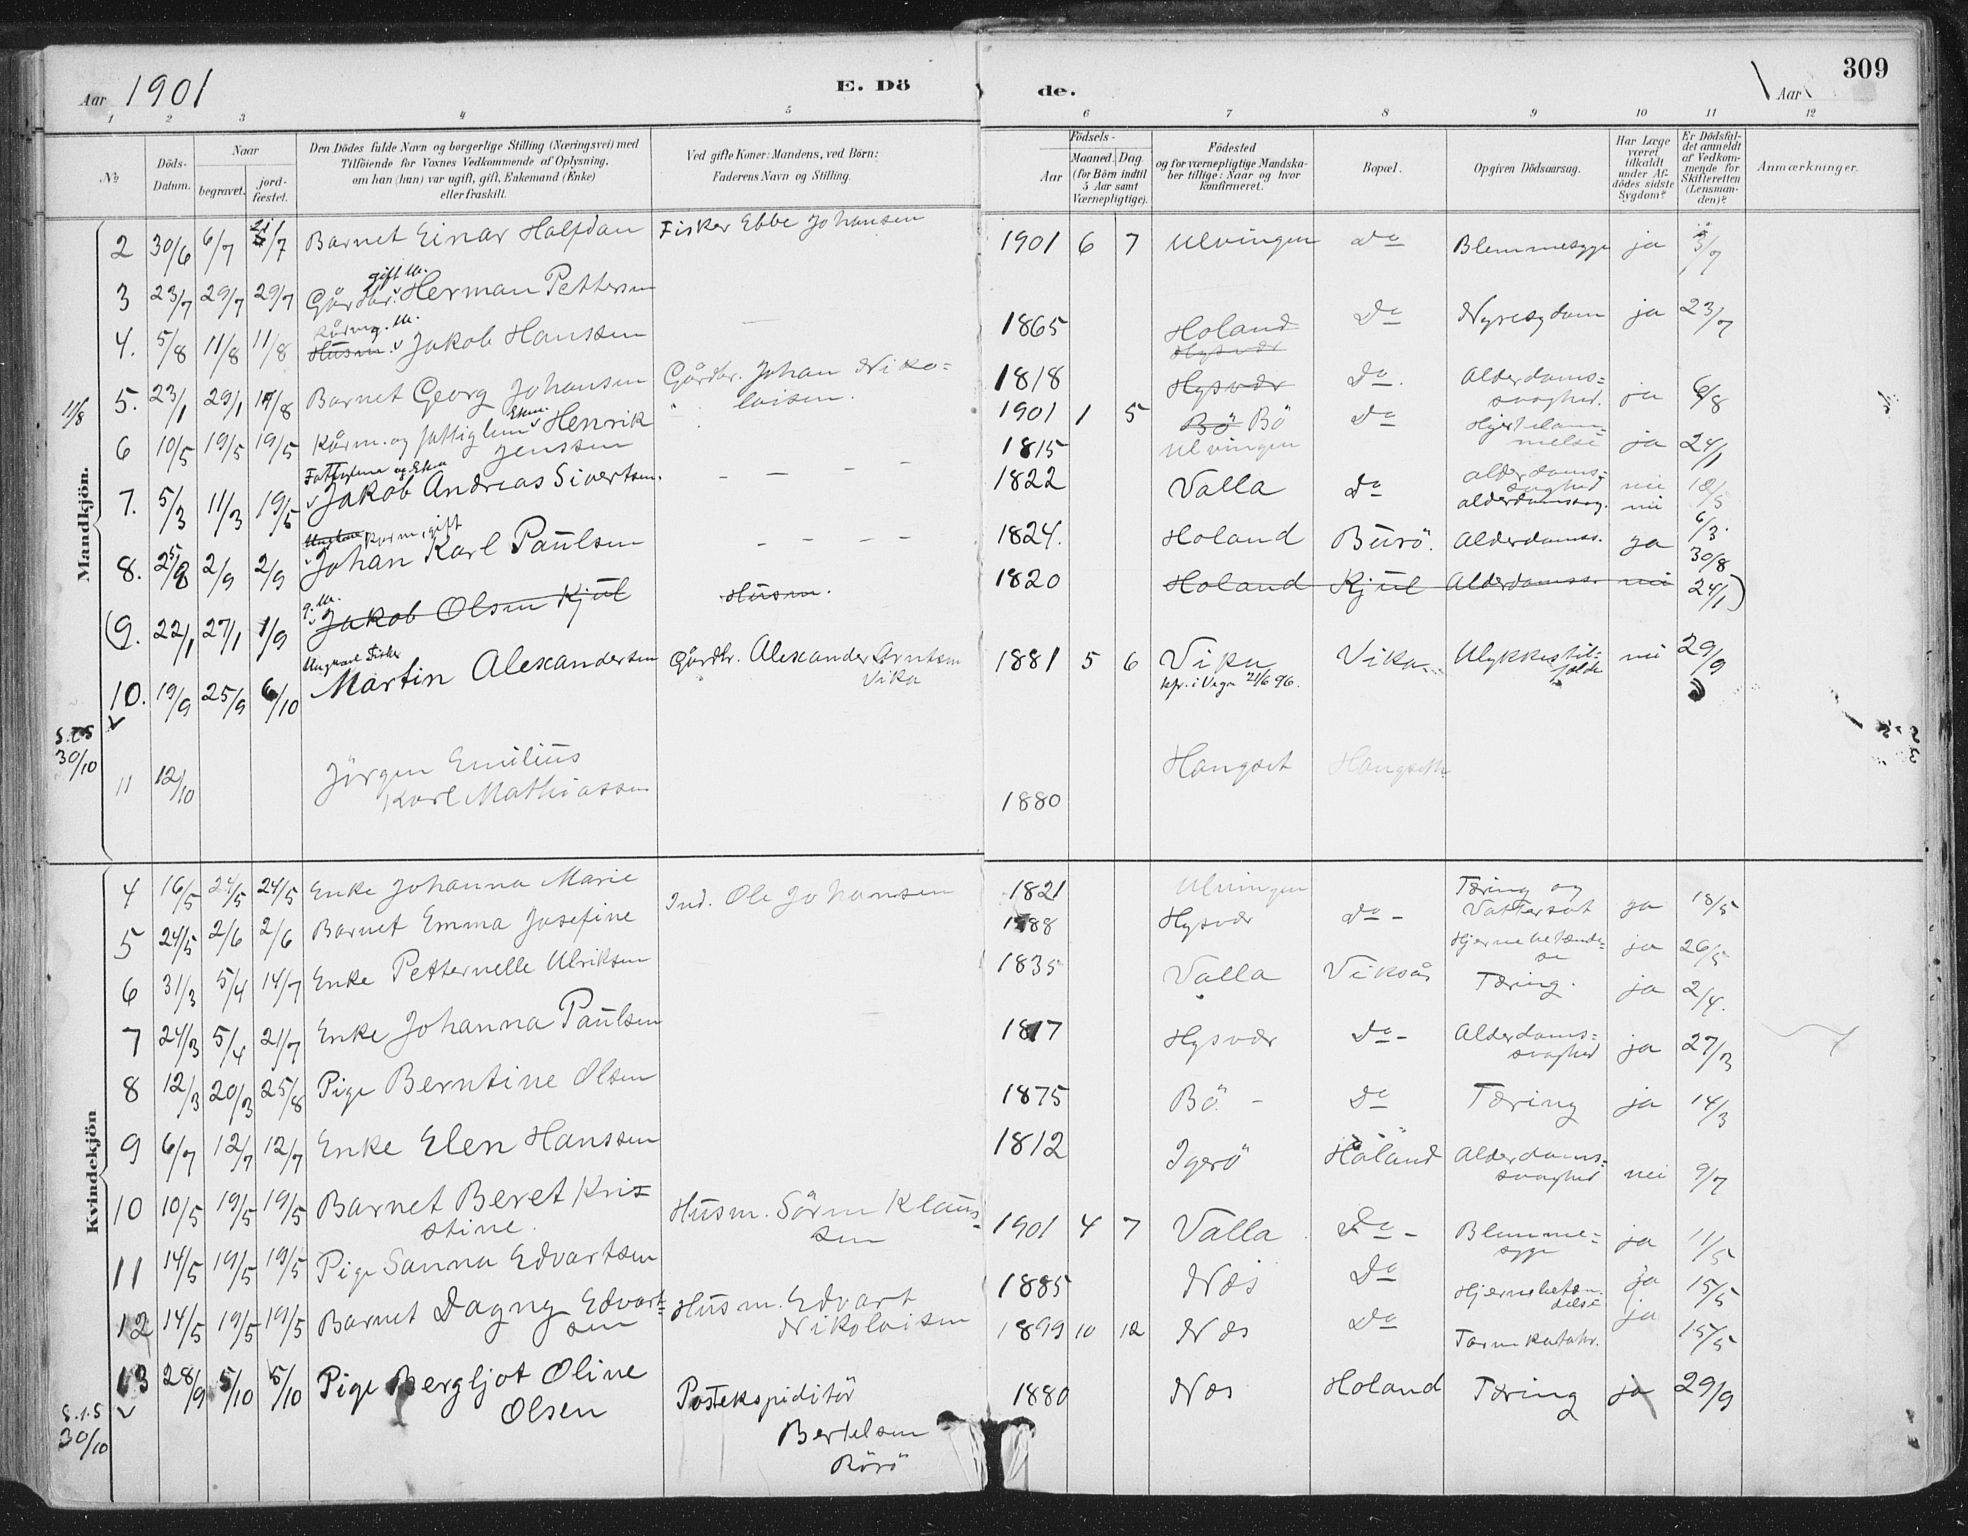 Aar 1901 E. Dö
de. Aar 309
1 2 3 4 5 6 7 8 9 10 11 12
No
Döds-Datum.
Naar
begravet.
jord-fæstet.
Den Dödes fulde Navn og borgerlige Stilling (Næringsvei) med
Tilföiende for Voxnes Vedkommende af Oplysning,
om han (hun) var ugift, gift, Enkemand (Enke)
eller fraskilt.
Ved gifte Koner: Mandens, ved Börn:
Faderens Navn og Stilling.
Födsels-
Aar
Maaned. Dag.
(for Börn indtil
5 Aar samt
Værnepligtige).
Födested
og for værnepligtige Mandska-
ber tillige: Naar og hvor
konfirmeret.
Bopæl.
Opgiven Dödsaarsag.
Har Læge
været
tilkaldt
under Af-
dödes sidste
Sygdom?
Er Dödsfal-
det anmeldt
af Vedkom-
mende for
Skifteretten
(Lensman-
den)?
Anmærkninger.
Mandkjön.
2 30/6 6/7 /7 Barnet Einar Halfdan Fisker Ebbe Johansen 1901 6 7 Ulvingen do Blemmesyge ja 3/7
gift M.
3 23/7 29/7 29/7 Gårdbr. Herman Pettersen 1865 Holand Do Nyresygdom ja 23/7
Hysvær
Kårm. g. M.
4. 5/8 11/8 11/8 Husm. Jakob Hanssen 1818 Hysvær Do. Alderdoms=
svaghed. ja 6/8
11/8 5. 23/1 29/1 /8 Barnet Georg Johansen Gårdbr. Johan Niko=
laisen. 1901 1 5 Bö Bö Do Hjertelam-
melse ja 24/1
6 10/5 19/5 19/5 Kårm. og fattiglem Ekm. Henrik
Jenssen 1815 Ulvingen alderdoms=
svaghed nei 10/5
Fattiglem og Ekm
7. 5/3 11/3 19/5 Jakob Andreas Sivertsen. 1822 Valla do alderdomssvag. nei 6/3.
Kårm, gift
8. 25/8 2/9 2/9 Johan Karl Paulsen 1824. Holand Burö. Alderdomss. ja 30/8
g. M.
(9. 22/1 27/1 1/9 Jakob Olsen Kjul Husm. 1820 Holand Kjul Alderdomss. nei 24/1)
Ungkarl Fisker
10. 19/9 25/9 6/10 Martin Alexandersen Gårdbr. Alexander Arntsen
Vika 1881 5 6 Vika Vika Ulykkestil=
fælde nei 29/9
kfr. i Vega 21/6 96.
30/10
11 12/10 Jörgen Emilius
Karl Mathiassen 1880 Hongset Hongseth
Kvindekjön
4 16/5 24/5 24/5 Enke Johanna Marie 1821 Ulvingen Tæring og
Vattersot ja 18/5
5 24/5 2/6 2/6 Barnet Emma Josefine Ind. Ole Johansen 1888 Hysvær Do - Hjernebetændel-
se ja 26/5
6 31/3 5/4 14/7 Enke Petternelle Ulriksen 1835 Valla Viksås Tæring. ja 2/4.
7 24/3 5/4 21/7 Enke Johanna Paulsen 1817 Hysvær Do - Alderdoms=
svaghed ja 27/3
8 12/3 20/3 25/8 Pige Berntine Olsen 1875 Bö. - Do Tæring ja 14/3
9 6/7 12/7 12/7 Enke Elen Hanssen 1812 Igerö Höland Alderdoms=
svaghed nei 9/7
10 10/5 19/5 19/5 Barnet Beret Kris=
stine. Husm. Sören Klaus-
sen 1901 4 7 Valla Do - Blemme=
syge ja 11/5
11 14/5 19/5 19/5 Pige Sanna Edvartsen 1885 Næs Do Hjernebetæn-
delse ja 15/5
12 14/5 19/5 19/5 Barnet Dagny Edvart=
sen Husm. Edvart
Nikolaisen 1899 10 12 Næs Do Tarmkatahr. ja 15/5
13 28/9 5/10 5/10 Pige Bergljot Oline
Olsen Postekspeditör
Bertelsen
Rörö 1880 Næs Holand Tæring ja 29/9
30/10